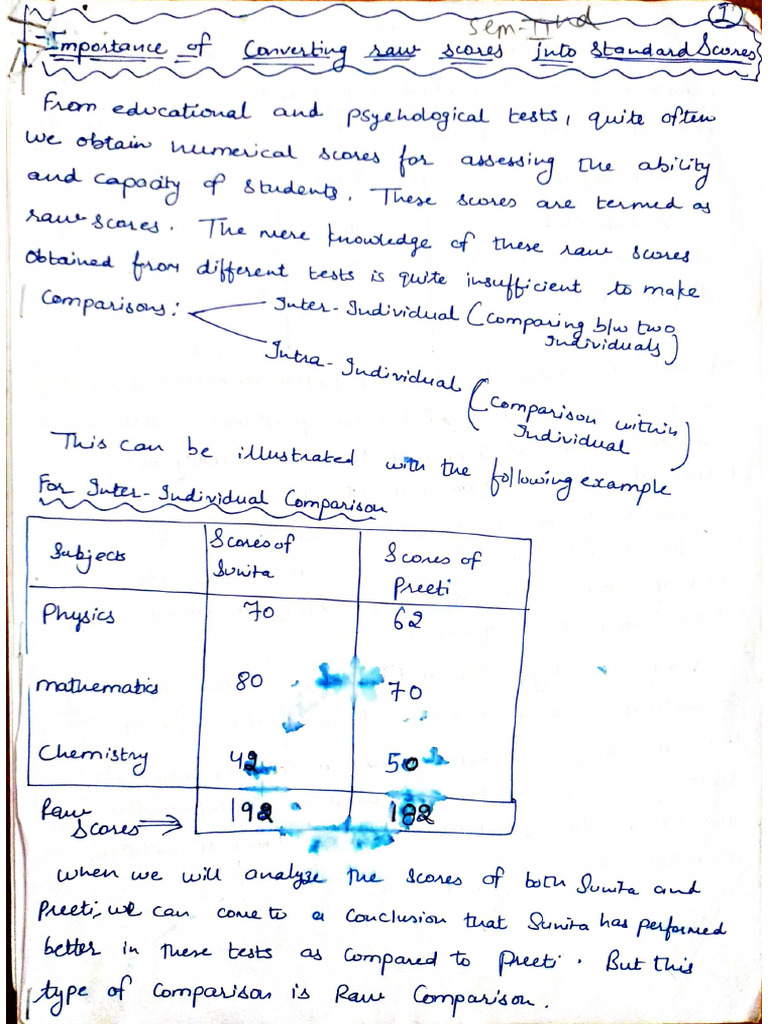 ①
Sem-IInd
Importance of Converting raw scores into Standard Scores
From educational and psychological tests, quite often
we obtain numerical scores for assessing the ability
and capacity of students. These scores are termed as
raw scores. The mere knowledge of these raw scores
obtained from different tests is quite insufficient to make
Comparisons:
Inter-Individual (comparing b/w two
Individuals)
Intra-Individual (comparison within
Individual)
This can be illustrated with the following example
For Inter-Individual Comparison
Subjects Scores of Sunita Scores of Preeti
Physics 70 62
mathematics 80 70
Chemistry 42 50
Raw Scores ⇒ 192 182
when we will analyze the scores of both Sunita and
Preeti, we can come to a conclusion that Sunita has performed
better in these tests as compared to Preeti. But this
type of comparison is Raw Comparison.